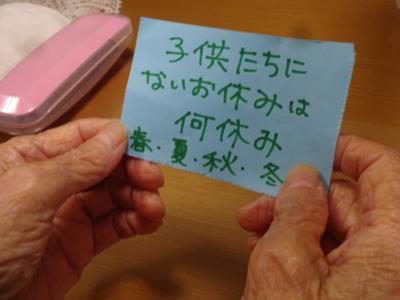 子供たちに
ないお休みは
何休み
春・夏・秋・冬